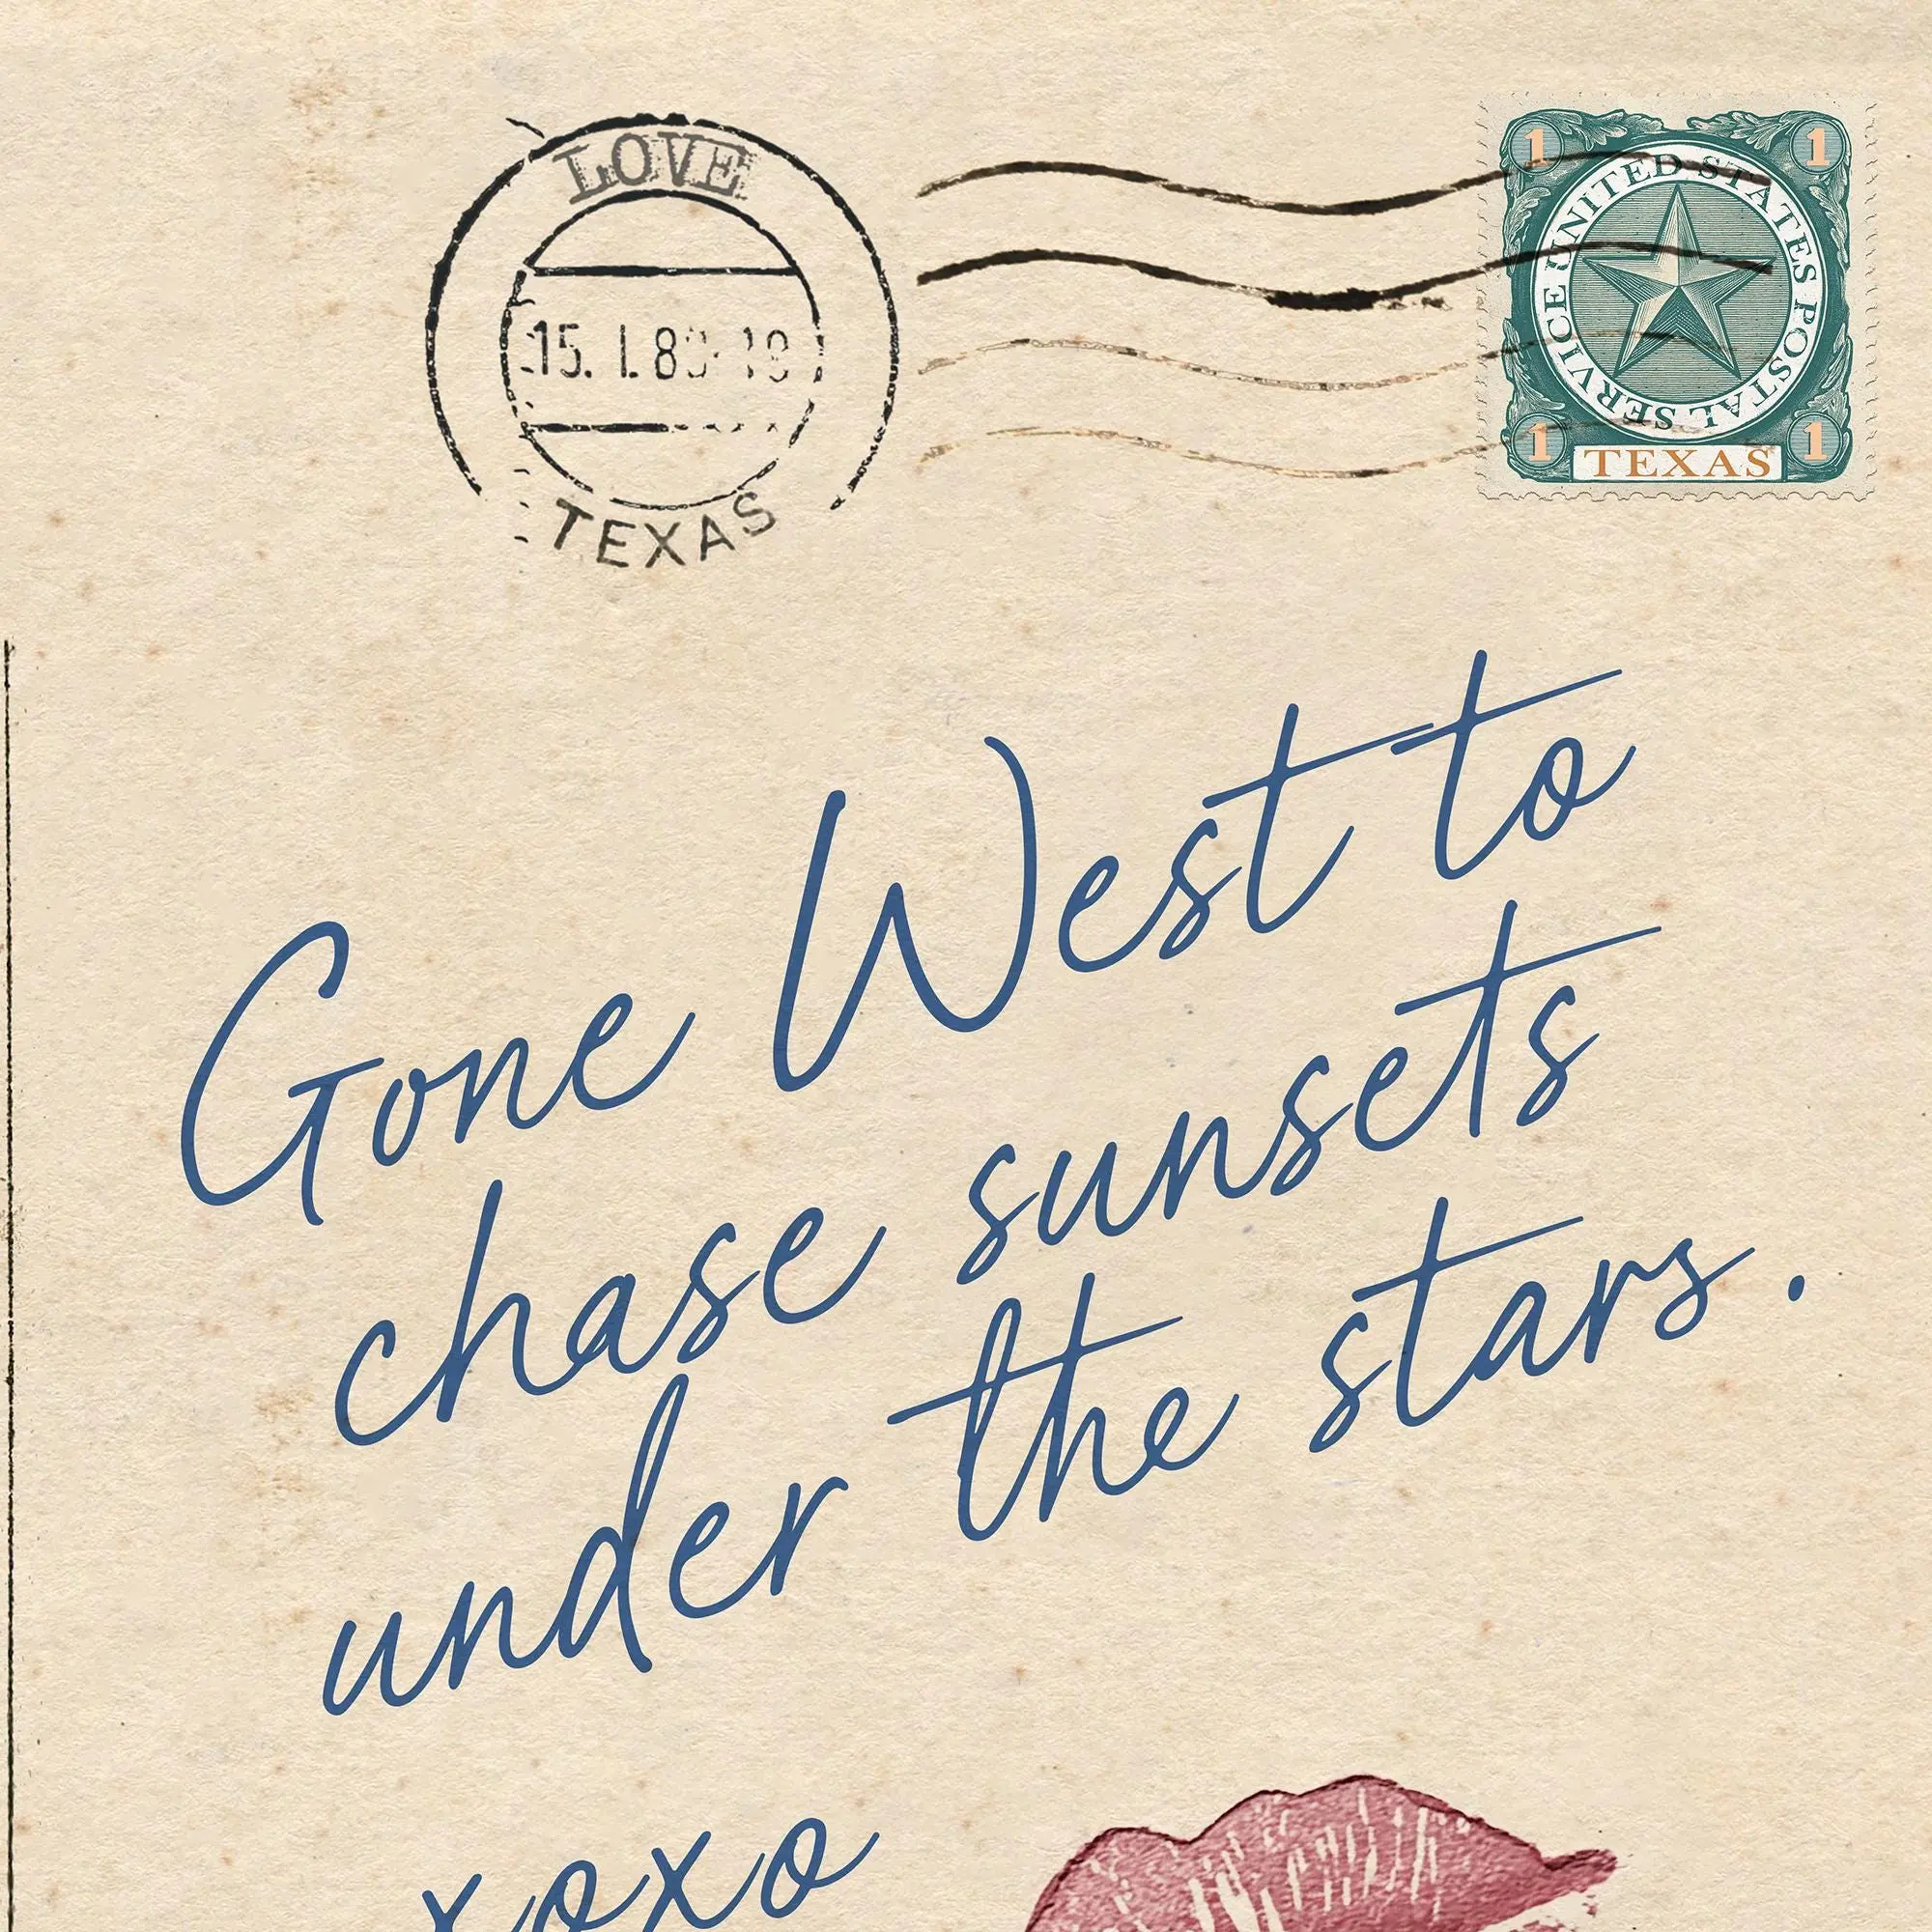 LOVE
TEXAS
1 1
UNITED STATES POSTAL SERVICE
1 1
TEXAS
Gone West to
chase sunsets
under the stars.
xoxo